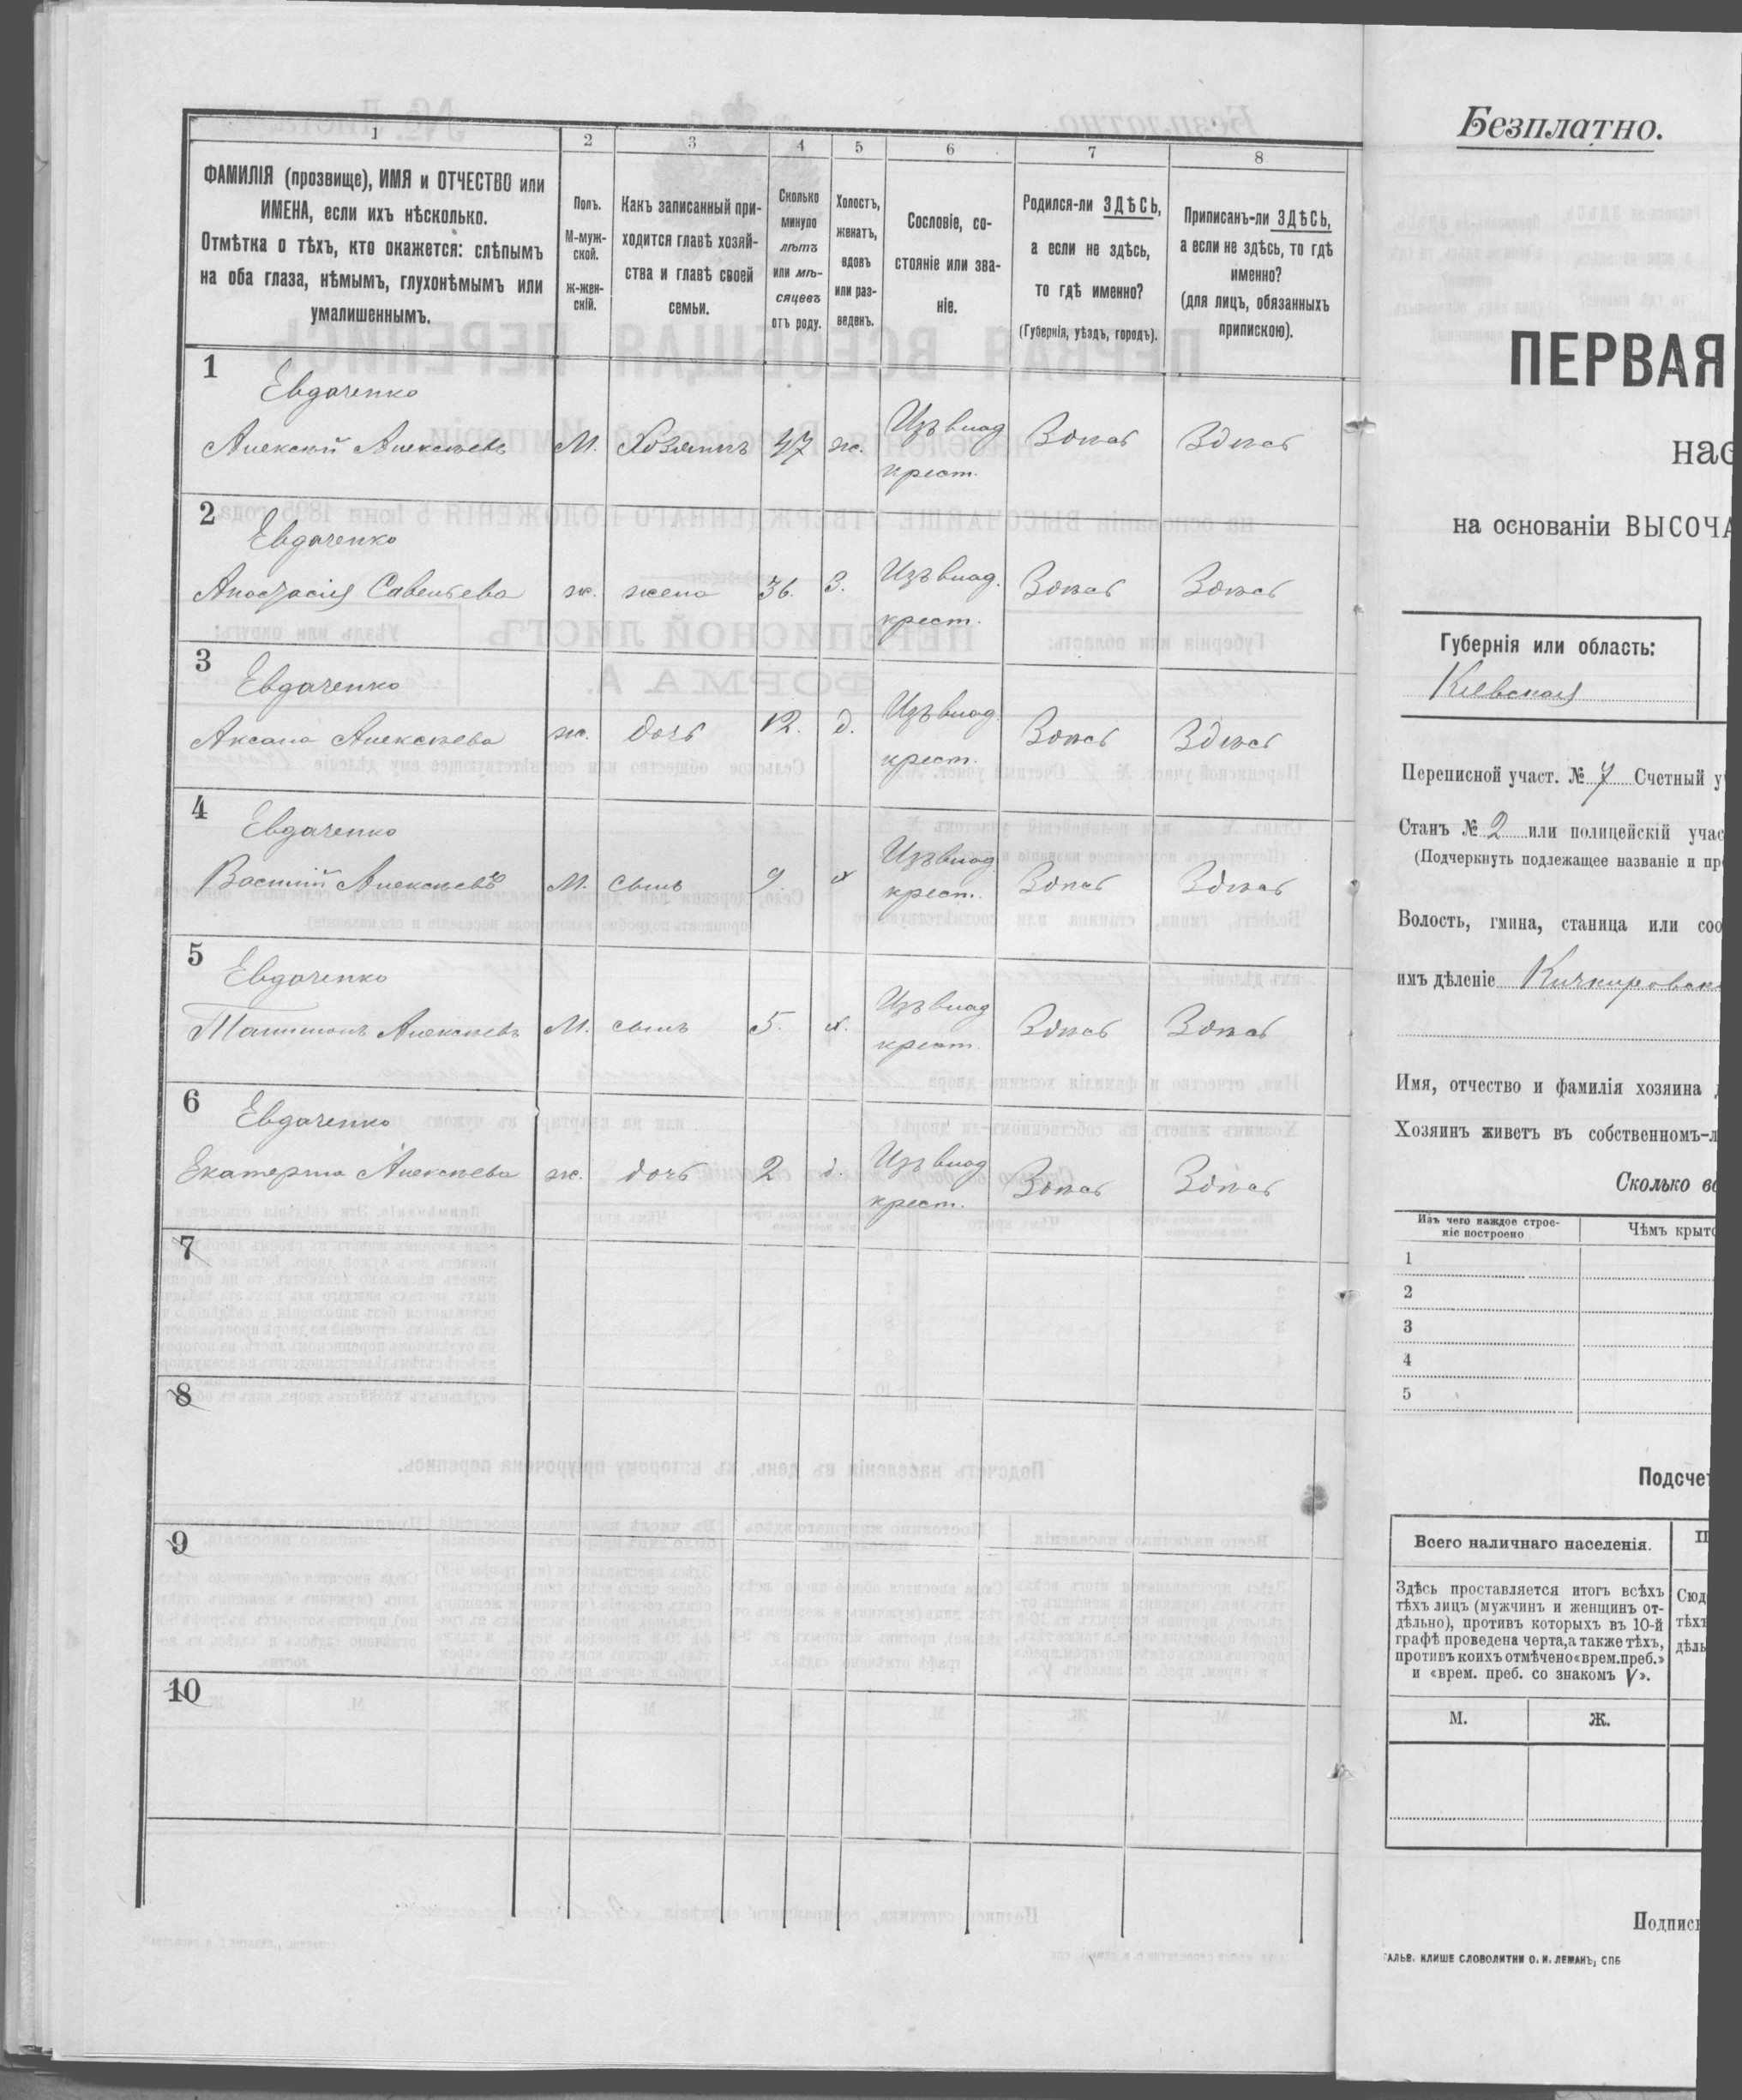 1
2
3
4
5
6
7
8
ФАМИЛІЯ (прозвище), ИМЯ и ОТЧЕСТВО или
ИМЕНА, если ихъ нѣсколько.
Отмѣтка о тѣхъ, кто окажется: слѣпымъ
на оба глаза, нѣмымъ, глухонѣмымъ или
умалишеннымъ.
Полъ.
М-муж-
ской.
Ж-жен-
скій.
Какъ записанный при-
ходится главѣ хозяй-
ства и главѣ своей
семьи.
Сколько
минуло
лѣтъ
или мѣ-
сяцевъ
отъ роду.
Холостъ,
женатъ,
вдовъ
или раз-
веденъ.
Сословіе, со-
стояніе или зва-
ніе.
Родился-ли ЗДѢСЬ,
а если не здѣсь,
то гдѣ именно?
(Губернія, уѣздъ, городъ).
Приписанъ-ли ЗДѢСЬ,
а если не здѣсь, то гдѣ
именно?
(для лицъ, обязанныхъ
припискою).
1
Евдаченко
Алексѣй Алексѣевъ М. Хозяинъ 47 ж. Изъ влад. Здѣсь Здѣсь
крест.
2
Евдаченко
Анастасія Савельева ж. жена 36. З. Изъ влад. Здѣсь Здѣсь
крест.
3
Евдаченко
Аксана Алексѣева ж. дочь 12. д. Изъ влад. Здѣсь Здѣсь
крест.
4
Евдаченко
Василій Алексѣевъ М. сынъ 9 х Изъ влад. Здѣсь Здѣсь
крест.
5
Евдаченко
Алексѣевъ М. сынъ 5. х. Изъ влад Здѣсь Здѣсь
крест.
6
Евдаченко
Екатерина Алексѣева ж. дочь 2 д. Изъ влад Здѣсь Здѣсь
крест.
7
8
9
10
Безплатно.
ПЕРВАЯ
нас
на основаніи ВЫСОЧА
Губернія или область:
Кіевская
Переписной участ. № 7 Счетный у
Станъ № 2 или полицейскій учас
(Подчеркнуть подлежащее названіе и пр
Волость, гмина, станица или соо
имъ дѣленіе
Имя, отчество и фамилія хозяина
Хозяинъ живетъ въ собственномъ-л
Сколько вс
Изъ чего каждое строе-
ніе построено
Чѣмъ крыто
1
2
3
4
5
Подсчет
Всего наличнаго населенія.
П
Здѣсь проставляется итогъ всѣхъ
тѣхъ лицъ (мужчинъ и женщинъ от-
дѣльно), противъ которыхъ въ 10-й
графѣ проведена черта, а также тѣхъ,
противъ коихъ отмѣчено «врем. преб.»
и «врем. преб. со знакомъ V».
Сюд
тѣхъ
дѣль
М.
Ж.
Подпись
ГАЛЬВ. КЛИШЕ СЛОВОЛИТНИ О. И. ЛЕМАНЪ, СПБ